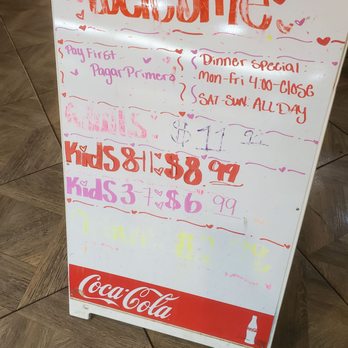 Welcome
Pay First
Pagar Primero
Dinner Special
Mon-Fri 4:00-Close
SAT-SUN: ALL DAY
Adults: $11
Kids 8-11: $8.99
Kids 3-7: $6.99
Coca-Cola